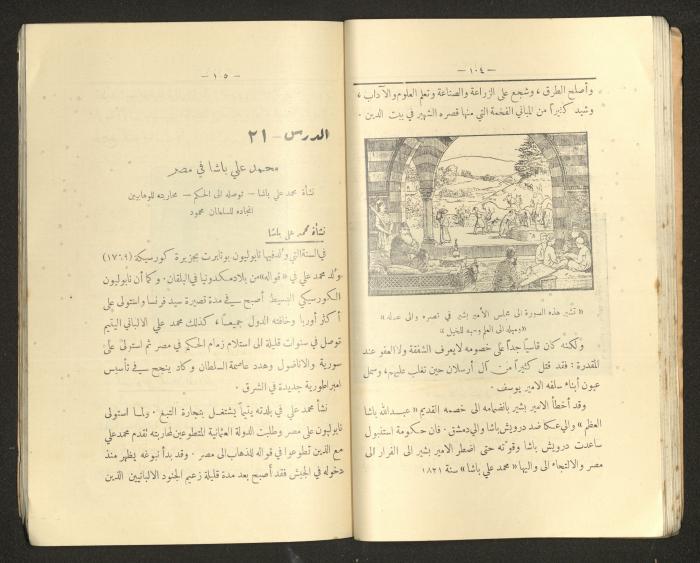 — ١٠٤ —
وأصلح الطرق ، وشجع على الزراعة والصناعة وتعلم العلوم والآداب ،
وشيد كثيراً من المباني الفخمة التي منها قصره الشهير في بيت الدين .
« تشير هذه الصورة الى مجلس الأمير بشير في قصره والى عدله »
« وميله الى العلم وحبه للخيل »
ولكنه كان قاسياً جداً على خصومه لا يعرف الشفقة ولا العفو عند
المقدرة : فقد قتل كثيراً من آل أرسلان حين تغلب عليهم ، وسمل
عيون أبناء سلفه الامير يوسف .
وقد أخطأ الامير بشير بانضمامه الى خصمه القديم « عبدالله باشا
العظم » والي عكا ضد درويش باشا والي دمشق . فان حكومة استنبول
ساعدت درويش باشا وقوته حتى اضطر الامير بشير الى الفرار الى
مصر والالتجاء الى واليها « محمد علي باشا » سنة ١٨٢١
— ١٠٥ —
الدرس - ٢١
محمد علي باشا في مصر
نشأة محمد علي باشا — توصله الى الحكم — محاربته للوهابيين
انجاده للسلطان محمود
نشأة محمد علي باشا
في السنة التي ولد فيها نابوليون بونابرت بجزيرة كورسيكة (١٧٦٩)
ولد محمد علي في « قواله » من بلاد مكدونيا في البلقان . وكما أن نابوليون
الكورسيكي البسيط أصبح في مدة قصيرة سيد فرنسا واستولى على
أكثر أوربا وخافته الدول جميعاً ، كذلك محمد علي الالباني اليتيم
توصل في سنوات قليلة الى استلام زمام الحكم في مصر ثم استولى على
سورية والاناضول وهدد عاصمة السلطان وكاد ينجح في تأسيس
امبراطورية جديدة في الشرق .
نشأ محمد علي في بلدته يتيماً يشتغل بتجارة التبغ . ولما استولى
نابوليون على مصر وطلبت الدولة العثمانية المتطوعين لمحاربته تقدم محمد علي
مع الذين تطوعوا في قواله للذهاب الى مصر . وقد بدأ نبوغه يظهر منذ
دخوله في الجيش فقد أصبح بعد مدة قليلة زعيم الجنود الالبانيين الذين